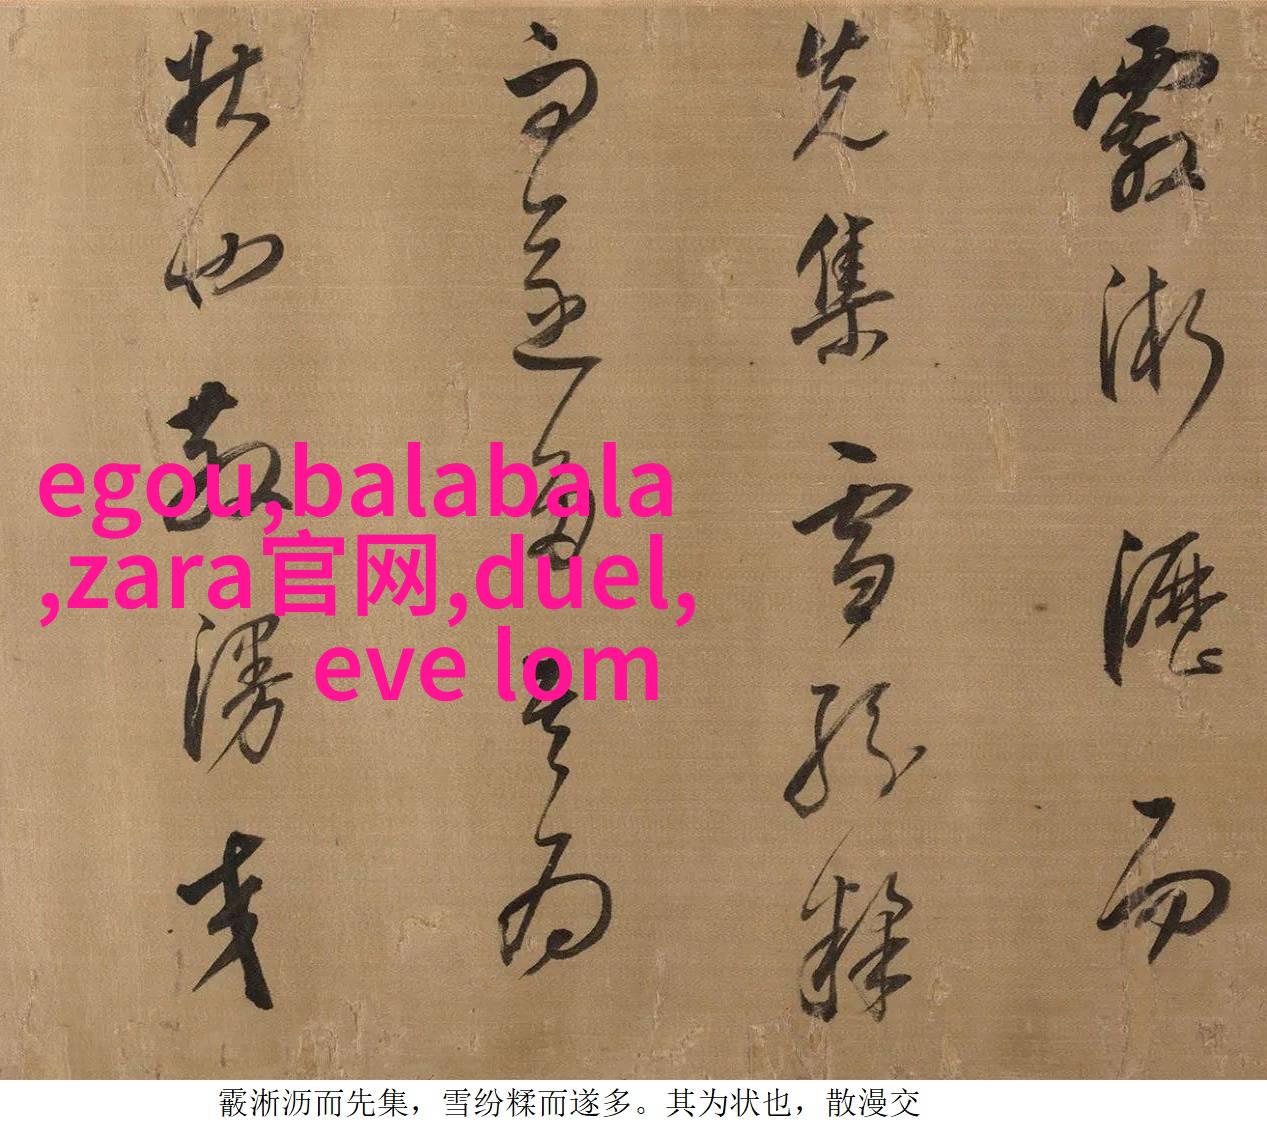 霰淅瀝而
先集雪紛糅
而遂多其為
狀也散漫交
egou,balabala
,zara官网,duel,
eve lom
霰淅沥而先集，雪纷糅而遂多。其为状也，散漫交